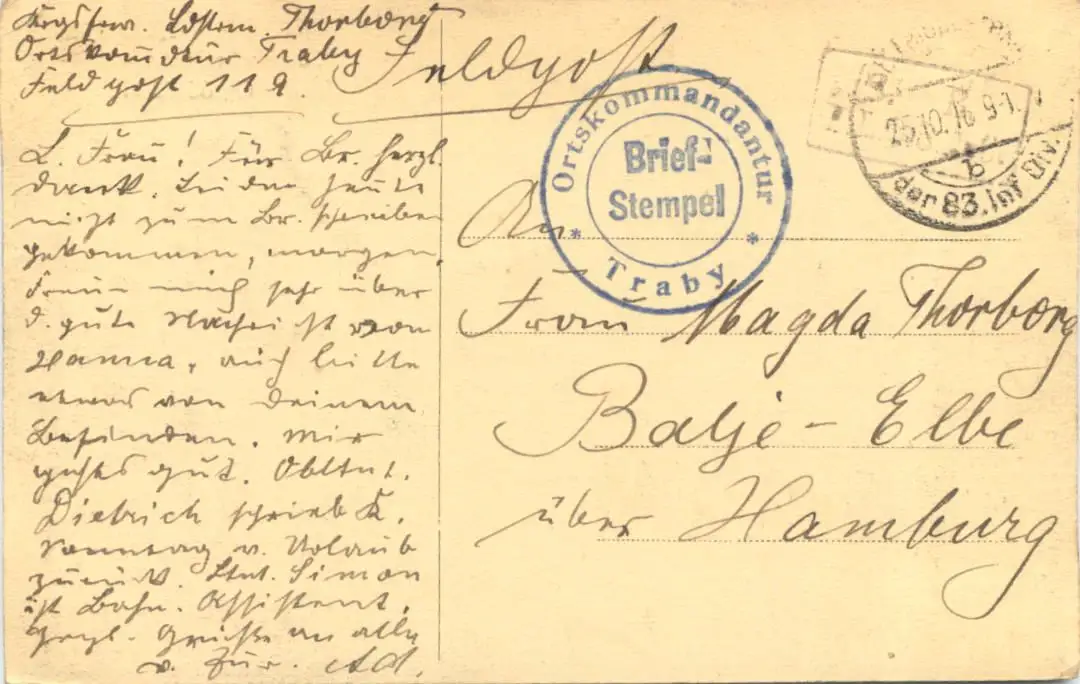 Ldstrm. Thorborg
Ortskomdtur Traby
Feldpost 119.
Feldpost
L. Frau! Für Br. herzl.
Dank. Leider heute
nicht zum Br. schreiben
gekommen, morgen.
Freue mich sehr über
d. gute Nachricht von
Hanna, auch bitte
etwas von Deinem
Befinden. Mir
gehts gut. Obltnt.
Dietrich schrieb K.
Sonntag v. Urlaub
zurück. Ltnt. Simon
ist Bahn-Assistent.
Herzl. Grüße an alle
Ad.
Ortskommandantur
Brief-
Stempel
* Traby *
25.10.16 9-1
b
der 83. Inf Div.
An
Frau Magda Thorborg
Balje-Elbe
über Hamburg